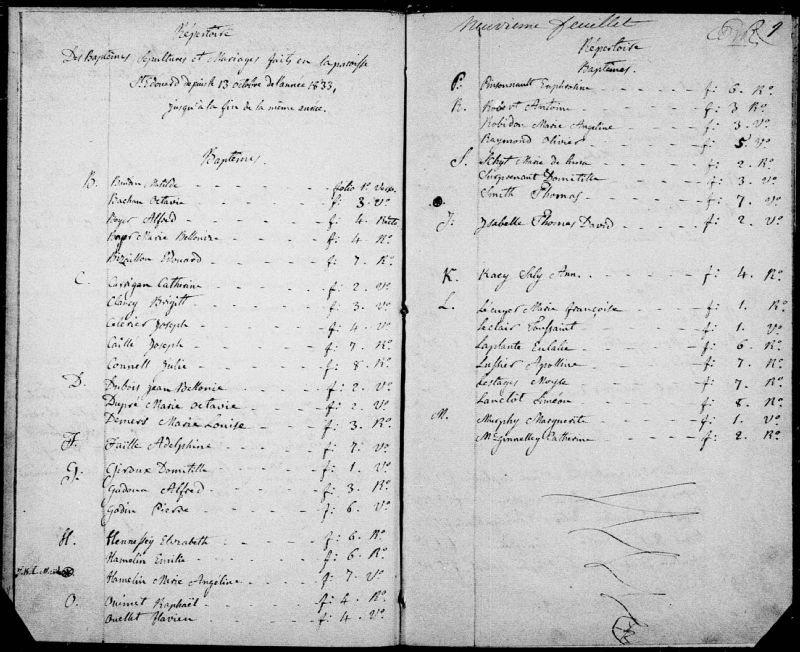 Répertoire
Des Baptêmes, Sépultures et Mariages faits en la paroisse
St Edouard depuis le 13 octobre de l'année 1833,
jusqu'à la fin de la même année.
Baptêmes.
B. Matilde - - - - folio 1o Verso
Bachan Octavie - - - - f: 3. Vo
Boyer Alfred - - - - f: 4. Recto
Boyer Marie Bellonie - - - - f: 4. Ro
Bizaillon Edouard - - - - f: 7. Ro
C. Carrigan Catherine - - - - f: 2. Vo
Clancy Brigitt - - - - f: 3. Vo
Célérier Joseph - - - - f: 4. Vo
Caille Joseph - - - - f: 7. Ro
Connell Julie - - - - f: 8. Ro
D. Dubois Jean Bellonie - - - f: 2. Vo
Dupré Marie Octavie - - - f: 2. Vo
Demers Marie Louise - - - f: 3. Ro
F. Faille Adelphine - - - - f: 7. Vo
G. Giroux Domitille - - - - f: 1. Vo
Gadoua Alfred - - - - f: 3. Ro
Godin Pierre - - - - f: 6. Vo
H. Hennessy Elizabeth - - - f: 6. Ro
Hamelin Emilie - - - - f: 6. Ro
Hamelin Marie Angeline - - - f: 7. Vo
O. Ouimet Raphaël - - - - f: 4. Ro
Ouellet Flavien - - - - f: 4. Vo
Neuvième feuillet 9
Répertoire
Baptêmes.
P. Pinsonnault Euphrosine - - f: 6. Ro
R. Robert Antoine - - - - f: 3 Ro
Robidou Marie Angeline - - - f: 3. Vo
Raymond Olivier - - - - f: 5. Vo
S. Marie - - - f: 2. Ro
Surprenant Domitille - - - f: 3. Vo
Smith Thomas - - - - f: 7. Vo
J. Ysabelle Thomas David - - - f: 2. Vo
K. Kacy Saly Ann. - - - - f: 4. Ro
L. Lécuyer Marie françoise - - - f: 1. Ro
Leclair Toussaint - - - - f: 1. Vo
Laplante Eulalie - - - - f: 6. Ro
Lussier Apolline - - - - f: 7. Ro
Lestages Moyse - - - - f: 7. Ro
Lanctot Siméon - - - - f: 8. Ro
M. Murphy Marguerite - - - f: 1. Vo
Catherine - - - f: 2. Ro